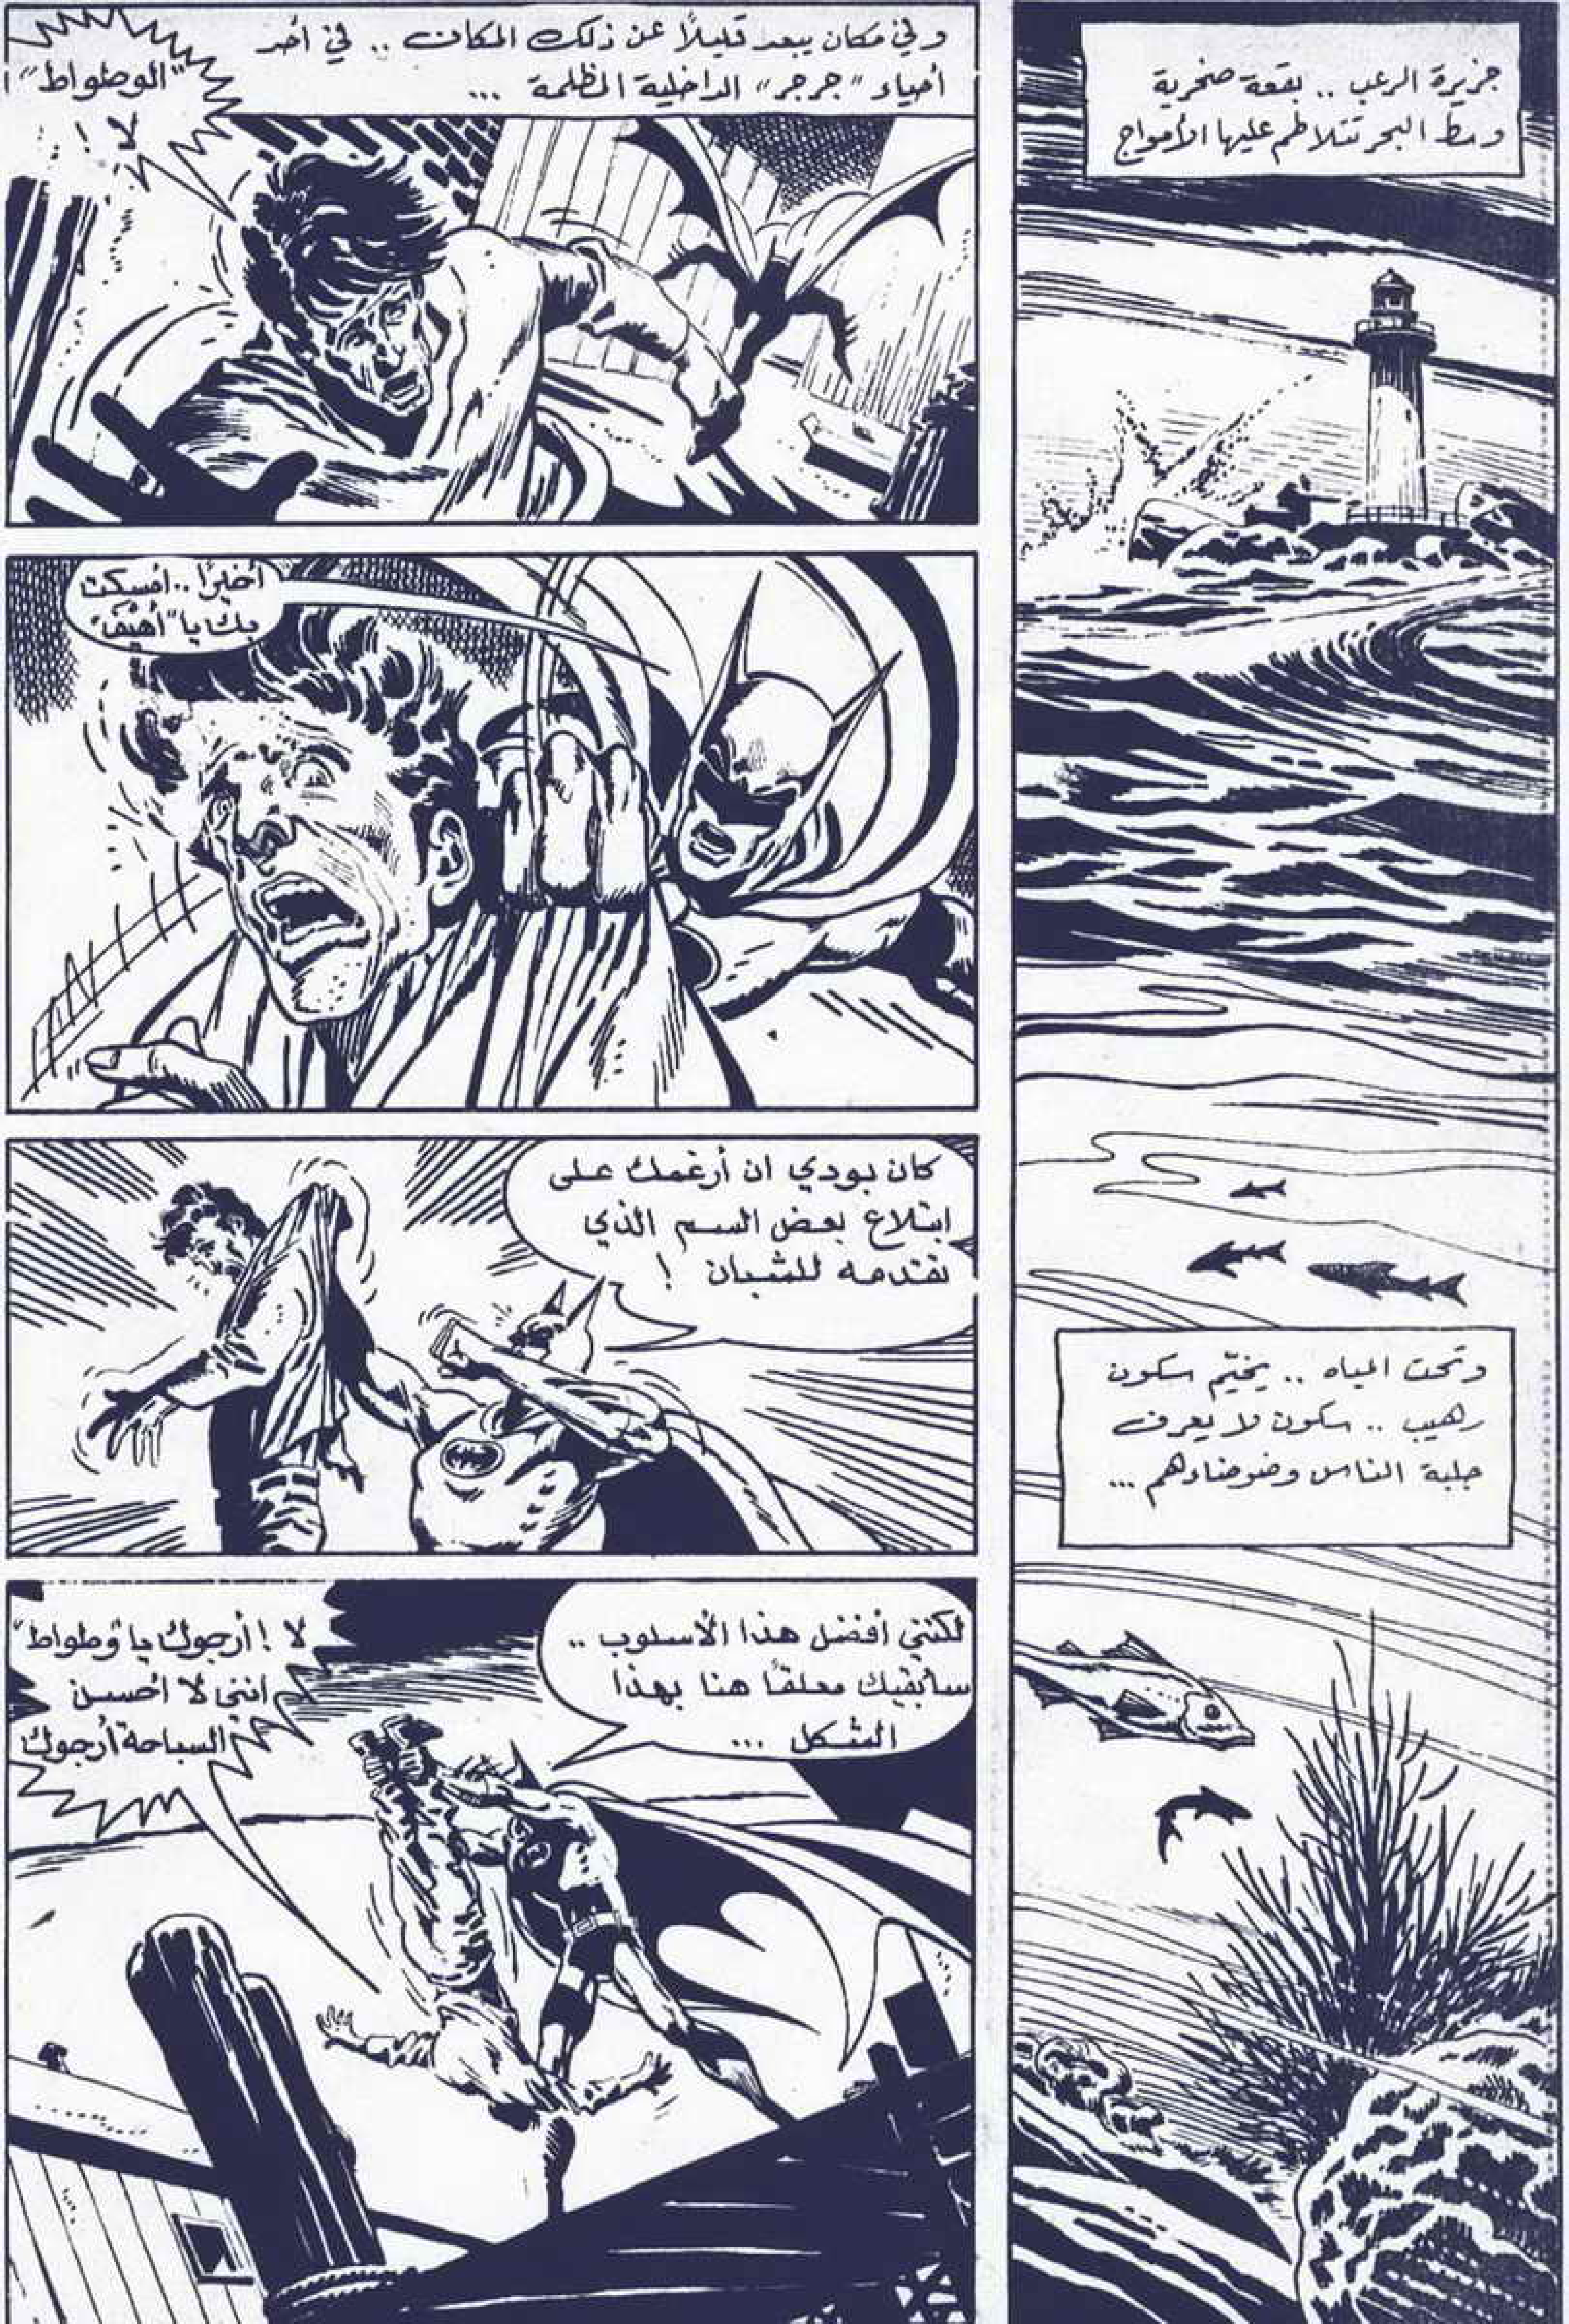 جزيرة الرعب .. بقعة صخرية
وسط البحر تتلاطم عليها الأمواج
وتحت المياه .. يخيّم سكون
رهيب .. سكون لا يعرف
جلبة الناس وضوضاءهم ...
وفي مكان يبعد قليلاً عن ذلك المكان .. في أحد
أحياء "جرجر" الداخلية المظلمة ...
"الوطواط"!
لا! ..
أخيرًا .. أمسكت
بك يا "أهيف"
كان بودي ان أرغمك على
ابتلاع بعض السم الذي
تقدمه للشبان !
لكنني أفضل هذا الأسلوب ..
سأبقيك معلقًا هنا بهذا
الشكل ...
لا! أرجوك يا "وطواط"
انني لا احسن
السباحة أرجوك